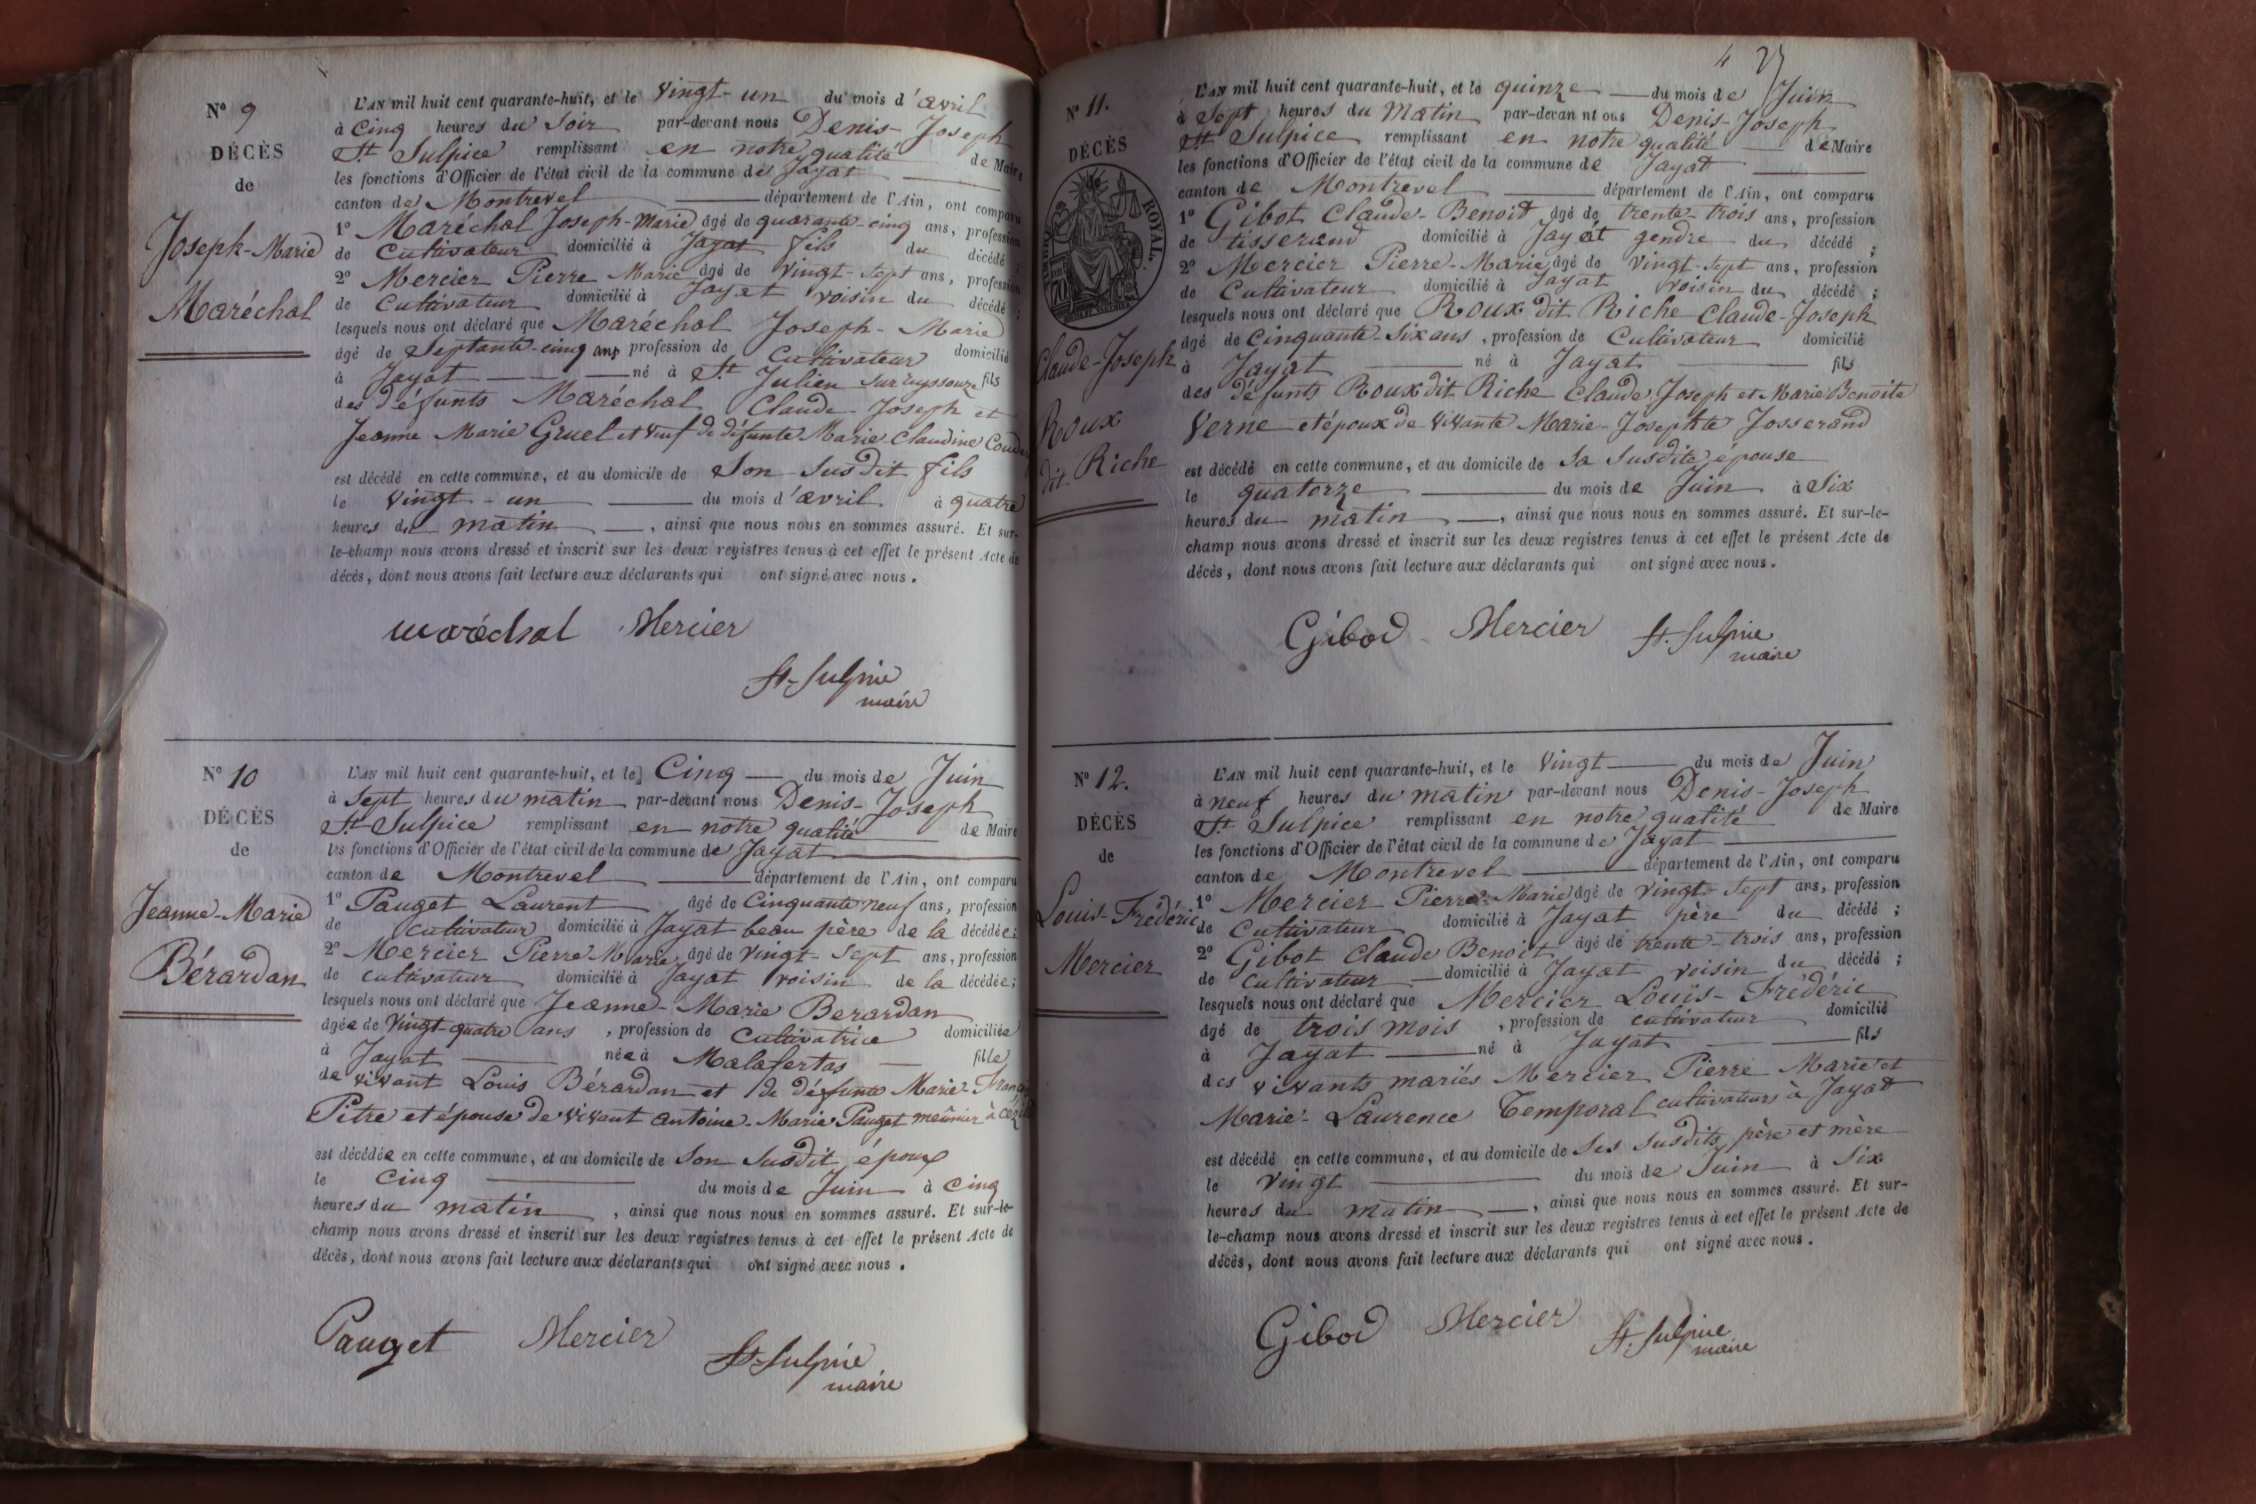 N° 9
DÉCÈS
de
Joseph-Marie
Maréchal
L'AN mil huit cent quarante-huit, et le vingt-un du mois d'avril
à cinq heures du soir par-devant nous Denis-Joseph
St Sulpice remplissant en notre qualité de Maire
les fonctions d'Officier de l'état civil de la commune de Jayat
canton de Montrevel département de l'Ain, ont comparu
1° Maréchal Joseph-Marie âgé de quarante-cinq ans, profession
de cultivateur domicilié à Jayat fils du décédé ;
2° Mercier Pierre Marie âgé de vingt-sept ans, profession
de cultivateur domicilié à Jayat voisin du décédé ;
lesquels nous ont déclaré que Maréchal Joseph-Marie
âgé de septante-cinq ans profession de cultivateur domicilié
à Jayat né à St Julien sur Reyssouze fils
des défunts Maréchal Claude Joseph et
Jeanne Marie Gruel et veuf de défunte Marie Claudine
est décédé en cette commune, et au domicile de son susdit fils
le vingt-un du mois d'avril à quatre
heures du matin, ainsi que nous nous en sommes assuré. Et sur-
le-champ nous avons dressé et inscrit sur les deux registres tenus à cet effet le présent Acte de
décès, dont nous avons fait lecture aux déclarants qui ont signé avec nous.
maréchal Mercier
St-Sulpice
maire
N° 10
DÉCÈS
de
Jeanne-Marie
Bérardan
L'AN mil huit cent quarante-huit, et le Cinq du mois de Juin
à sept heures du matin par-devant nous Denis-Joseph
St Sulpice remplissant en notre qualité de Maire
les fonctions d'Officier de l'état civil de la commune de Jayat
canton de Montrevel département de l'Ain, ont comparu
1° Pauget Laurent âgé de cinquante neuf ans, profession
de cultivateur domicilié à Jayat beau père de la décédée ;
2° Mercier Pierre Marie âgé de vingt-sept ans, profession
de cultivateur domicilié à Jayat voisin de la décédée ;
lesquels nous ont déclaré que Jeanne-Marie Berardan
âgée de vingt quatre ans, profession de cultivatrice domiciliée
à Jayat née à Malafertas fille
de vivant Louis Bérardan et de défunte Marie-
Pitre et épouse de vivant antoine-Marie Pauget meûnier à
est décédée en cette commune, et au domicile de son susdit époux
le cinq du mois de Juin à cinq
heures du matin, ainsi que nous nous en sommes assuré. Et sur-le-
champ nous avons dressé et inscrit sur les deux registres tenus à cet effet le présent Acte de
décès, dont nous avons fait lecture aux déclarants qui ont signé avec nous.
Pauget Mercier St-Sulpice
maire
4
N° 11.
DÉCÈS
de
ROYAL.
Claude-Joseph
Roux
dit Riche
L'AN mil huit cent quarante-huit, et le quinze du mois de Juin
à sept heures du matin par-devant nous Denis-Joseph
St Sulpice remplissant en notre qualité de Maire
les fonctions d'Officier de l'état civil de la commune de Jayat
canton de Montrevel département de l'Ain, ont comparu
1° Gibot Claude-Benoit âgé de trente-trois ans, profession
de tisserand domicilié à Jayat gendre du décédé ;
2° Mercier Pierre-Marie âgé de vingt-sept ans, profession
de cultivateur domicilié à Jayat voisin du décédé ;
lesquels nous ont déclaré que Roux dit Riche Claude-Joseph
âgé de cinquante-six ans, profession de cultivateur domicilié
à Jayat né à Jayat fils
des défunts Roux dit Riche Claude Joseph et Marie Benoite
Verne et époux de vivante Marie-Josephte Josserand
est décédé en cette commune, et au domicile de sa susdite épouse
le quatorze du mois de Juin à six
heures du matin, ainsi que nous nous en sommes assuré. Et sur-le-
champ nous avons dressé et inscrit sur les deux registres tenus à cet effet le présent Acte de
décès, dont nous avons fait lecture aux déclarants qui ont signé avec nous.
Gibod Mercier St-Sulpice
maire
N° 12.
DÉCÈS
de
Louis-Frédéric
Mercier
L'AN mil huit cent quarante-huit, et le vingt du mois de Juin
à neuf heures du matin par-devant nous Denis-Joseph
St Sulpice remplissant en notre qualité de Maire
les fonctions d'Officier de l'état civil de la commune de Jayat
canton de Montrevel département de l'Ain, ont comparu
1° Mercier Pierre-Marie âgé de vingt-sept ans, profession
de cultivateur domicilié à Jayat père du décédé ;
2° Gibot Claude Benoit âgé de trente-trois ans, profession
de cultivateur domicilié à Jayat voisin du décédé ;
lesquels nous ont déclaré que Mercier Louis-Frédéric
âgé de trois mois, profession de cultivateur domicilié
à Jayat né à Jayat fils
des vivants mariés Mercier Pierre Marie et
Marie-Laurence Temporal cultivateurs à Jayat
est décédé en cette commune, et au domicile de ses susdits père et mère
le vingt du mois de Juin à six
heures du matin, ainsi que nous nous en sommes assuré. Et sur-
le-champ nous avons dressé et inscrit sur les deux registres tenus à cet effet le présent Acte de
décès, dont nous avons fait lecture aux déclarants qui ont signé avec nous.
Gibod Mercier St-Sulpice
maire